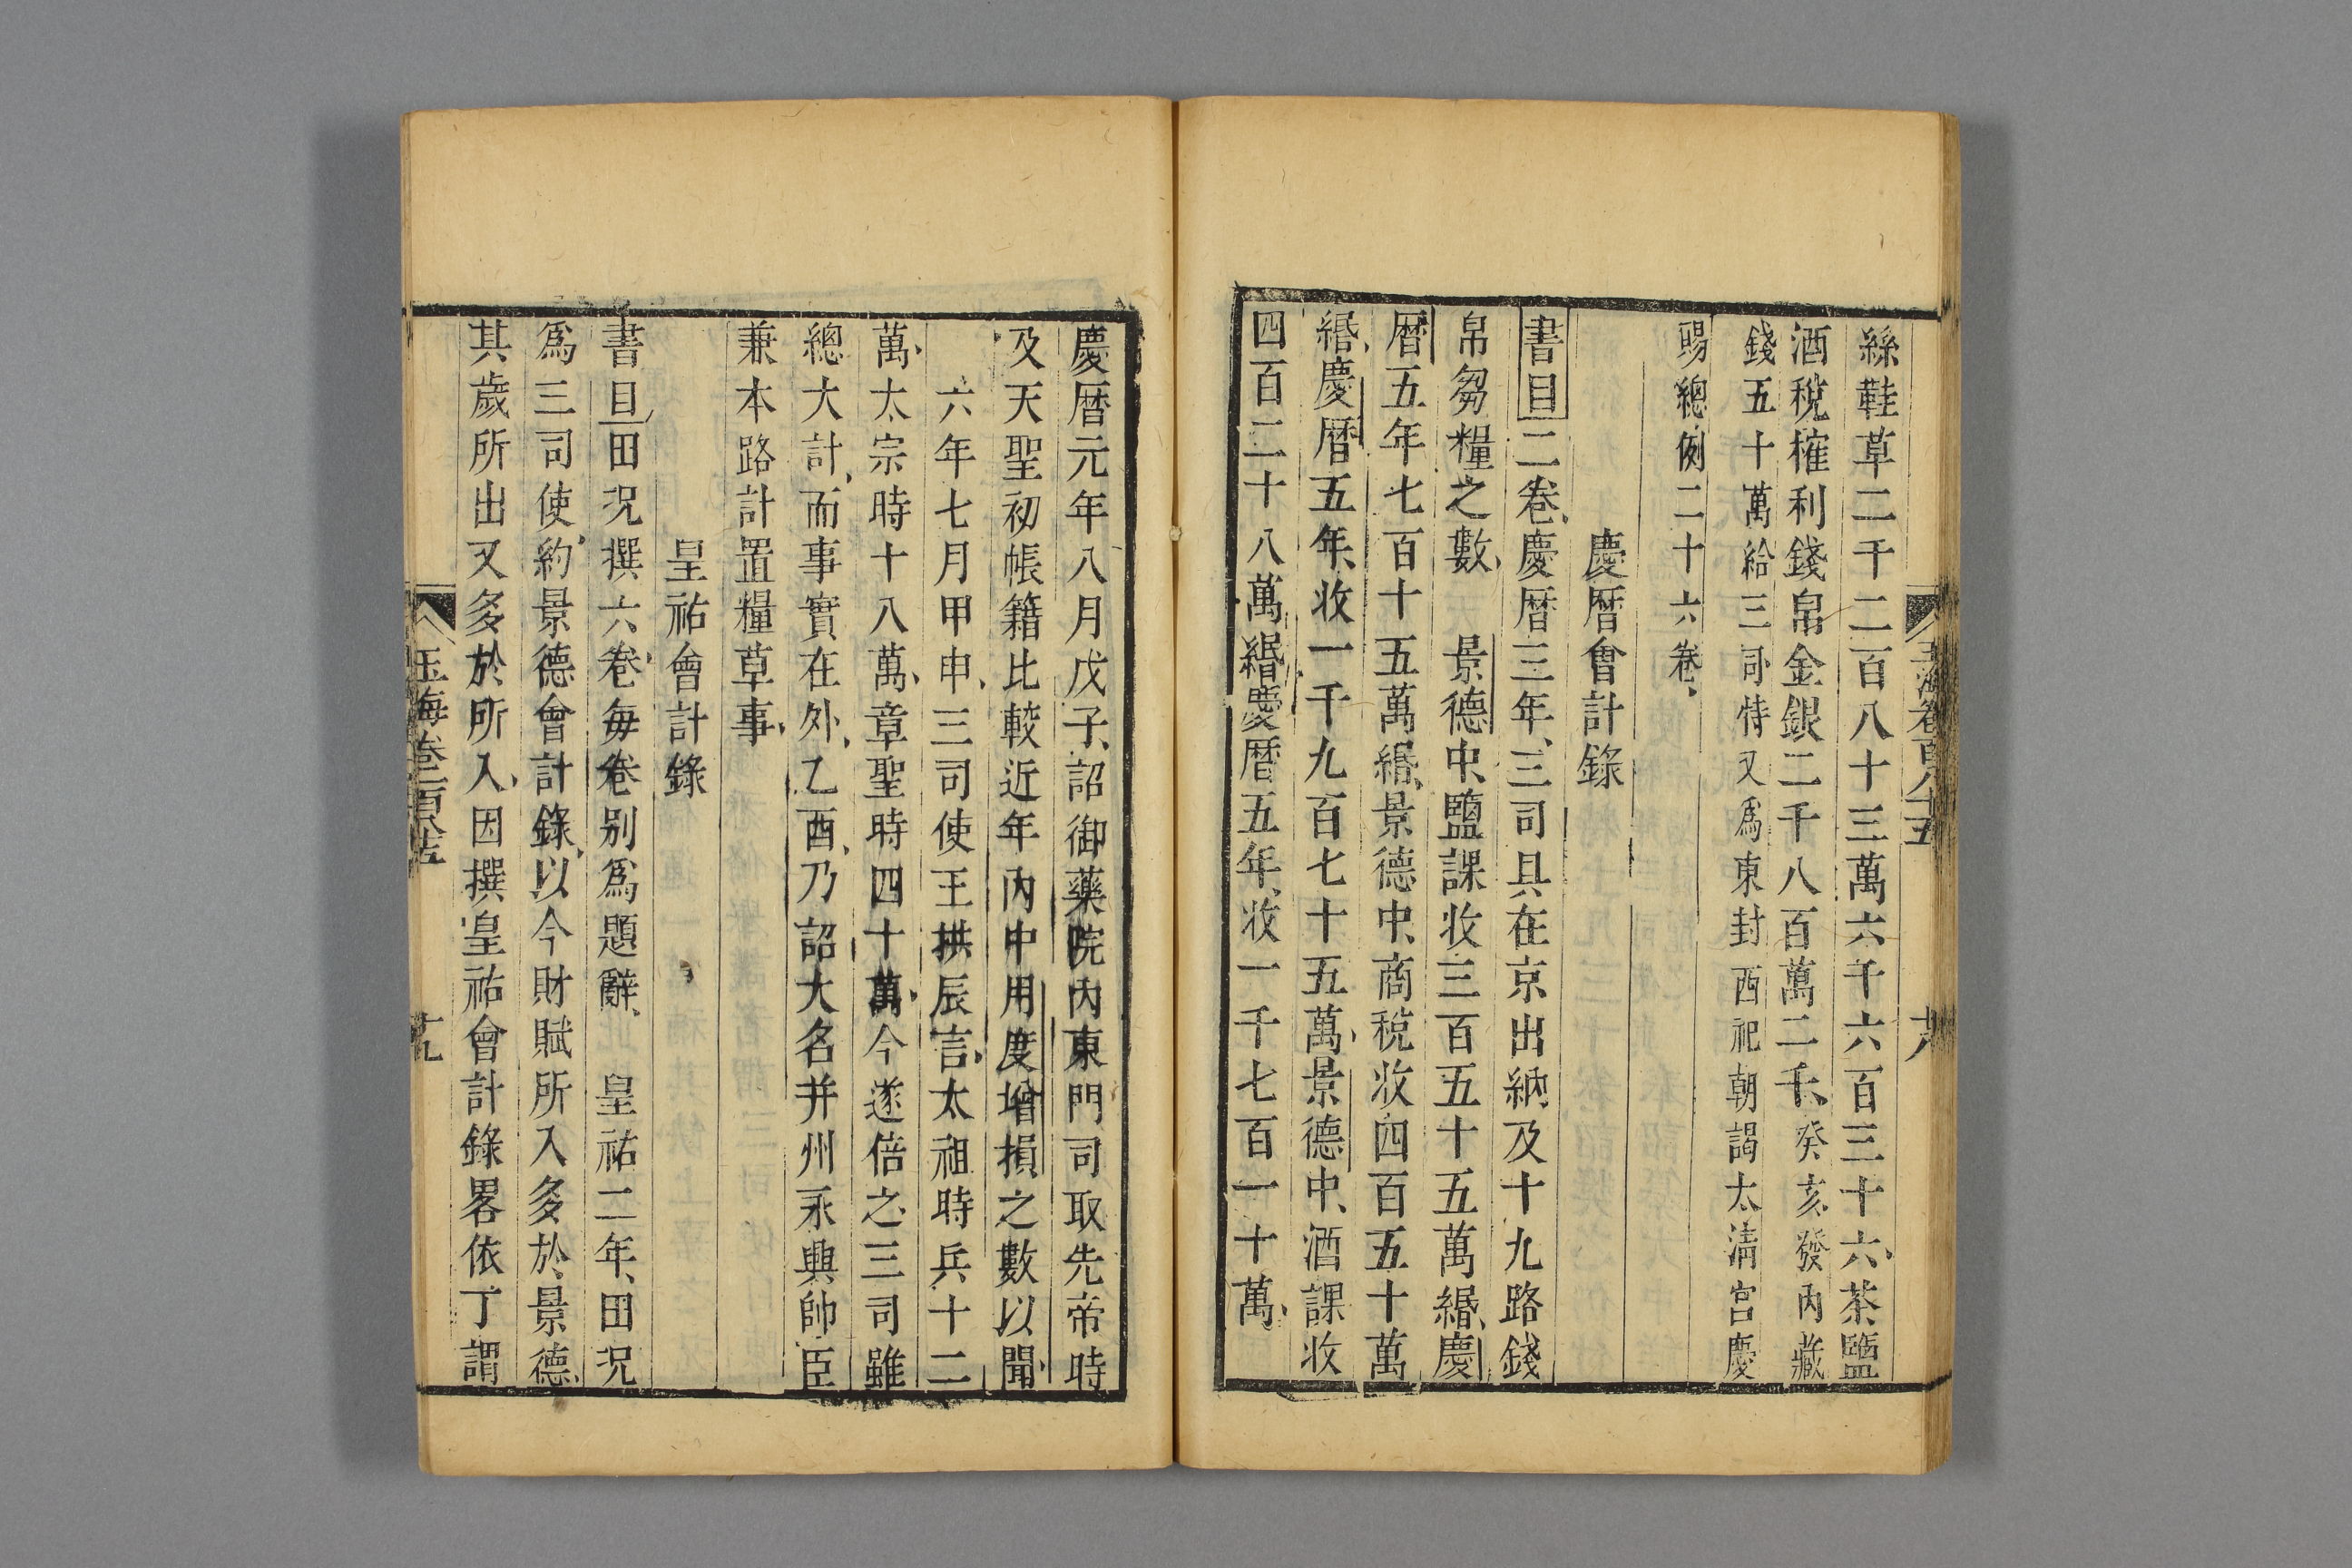 絲鞋草二千二百八十三萬六千六百三十六茶鹽
酒稅榷利錢帛金銀二千八百萬二千癸亥發內藏
錢五十萬給三司特又爲東封西祀朝謁太淸宮慶
賜總例二十六卷
慶曆會計錄
書目二卷慶曆三年三司具在京出納及十九路錢
帛芻糧之數 景德中鹽課收三百五十五萬緡慶
曆五年七百十五萬緡景德中商稅收四百五十萬
緡慶曆五年收一千九百七十五萬景德中酒課收
四百二十八萬緡慶曆五年收一千七百一十萬
慶曆元年八月戊子詔御藥院內東門司取先帝時
及天聖初帳籍比較近年內中用度增損之數以聞
六年七月甲申三司使王拱辰言太祖時兵十二
萬太宗時十八萬章聖時四十萬今遂倍之三司雖
總大計而事實在外乙酉乃詔大名并州永興帥臣
兼本路計置糧草事
皇祐會計錄
書目田況撰六卷每卷别爲題辭 皇祐二年田況
爲三司使約景德會計錄以今財賦所入多於景德
其歲所出又多於所入因撰皇祐會計錄畧依丁謂
玉海卷百八十五
十八
玉海卷一百八十五
十九